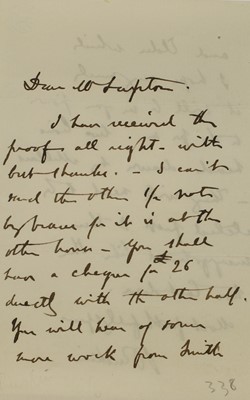 Dear Mr Lupton.
I have received the
proofs all right - with
best thanks. - I can't
send the other 1/2 note
by for it is at the
other house - You shall
have a cheque for £26
directly with the other half.
You will hear of some
more work from Smith
338